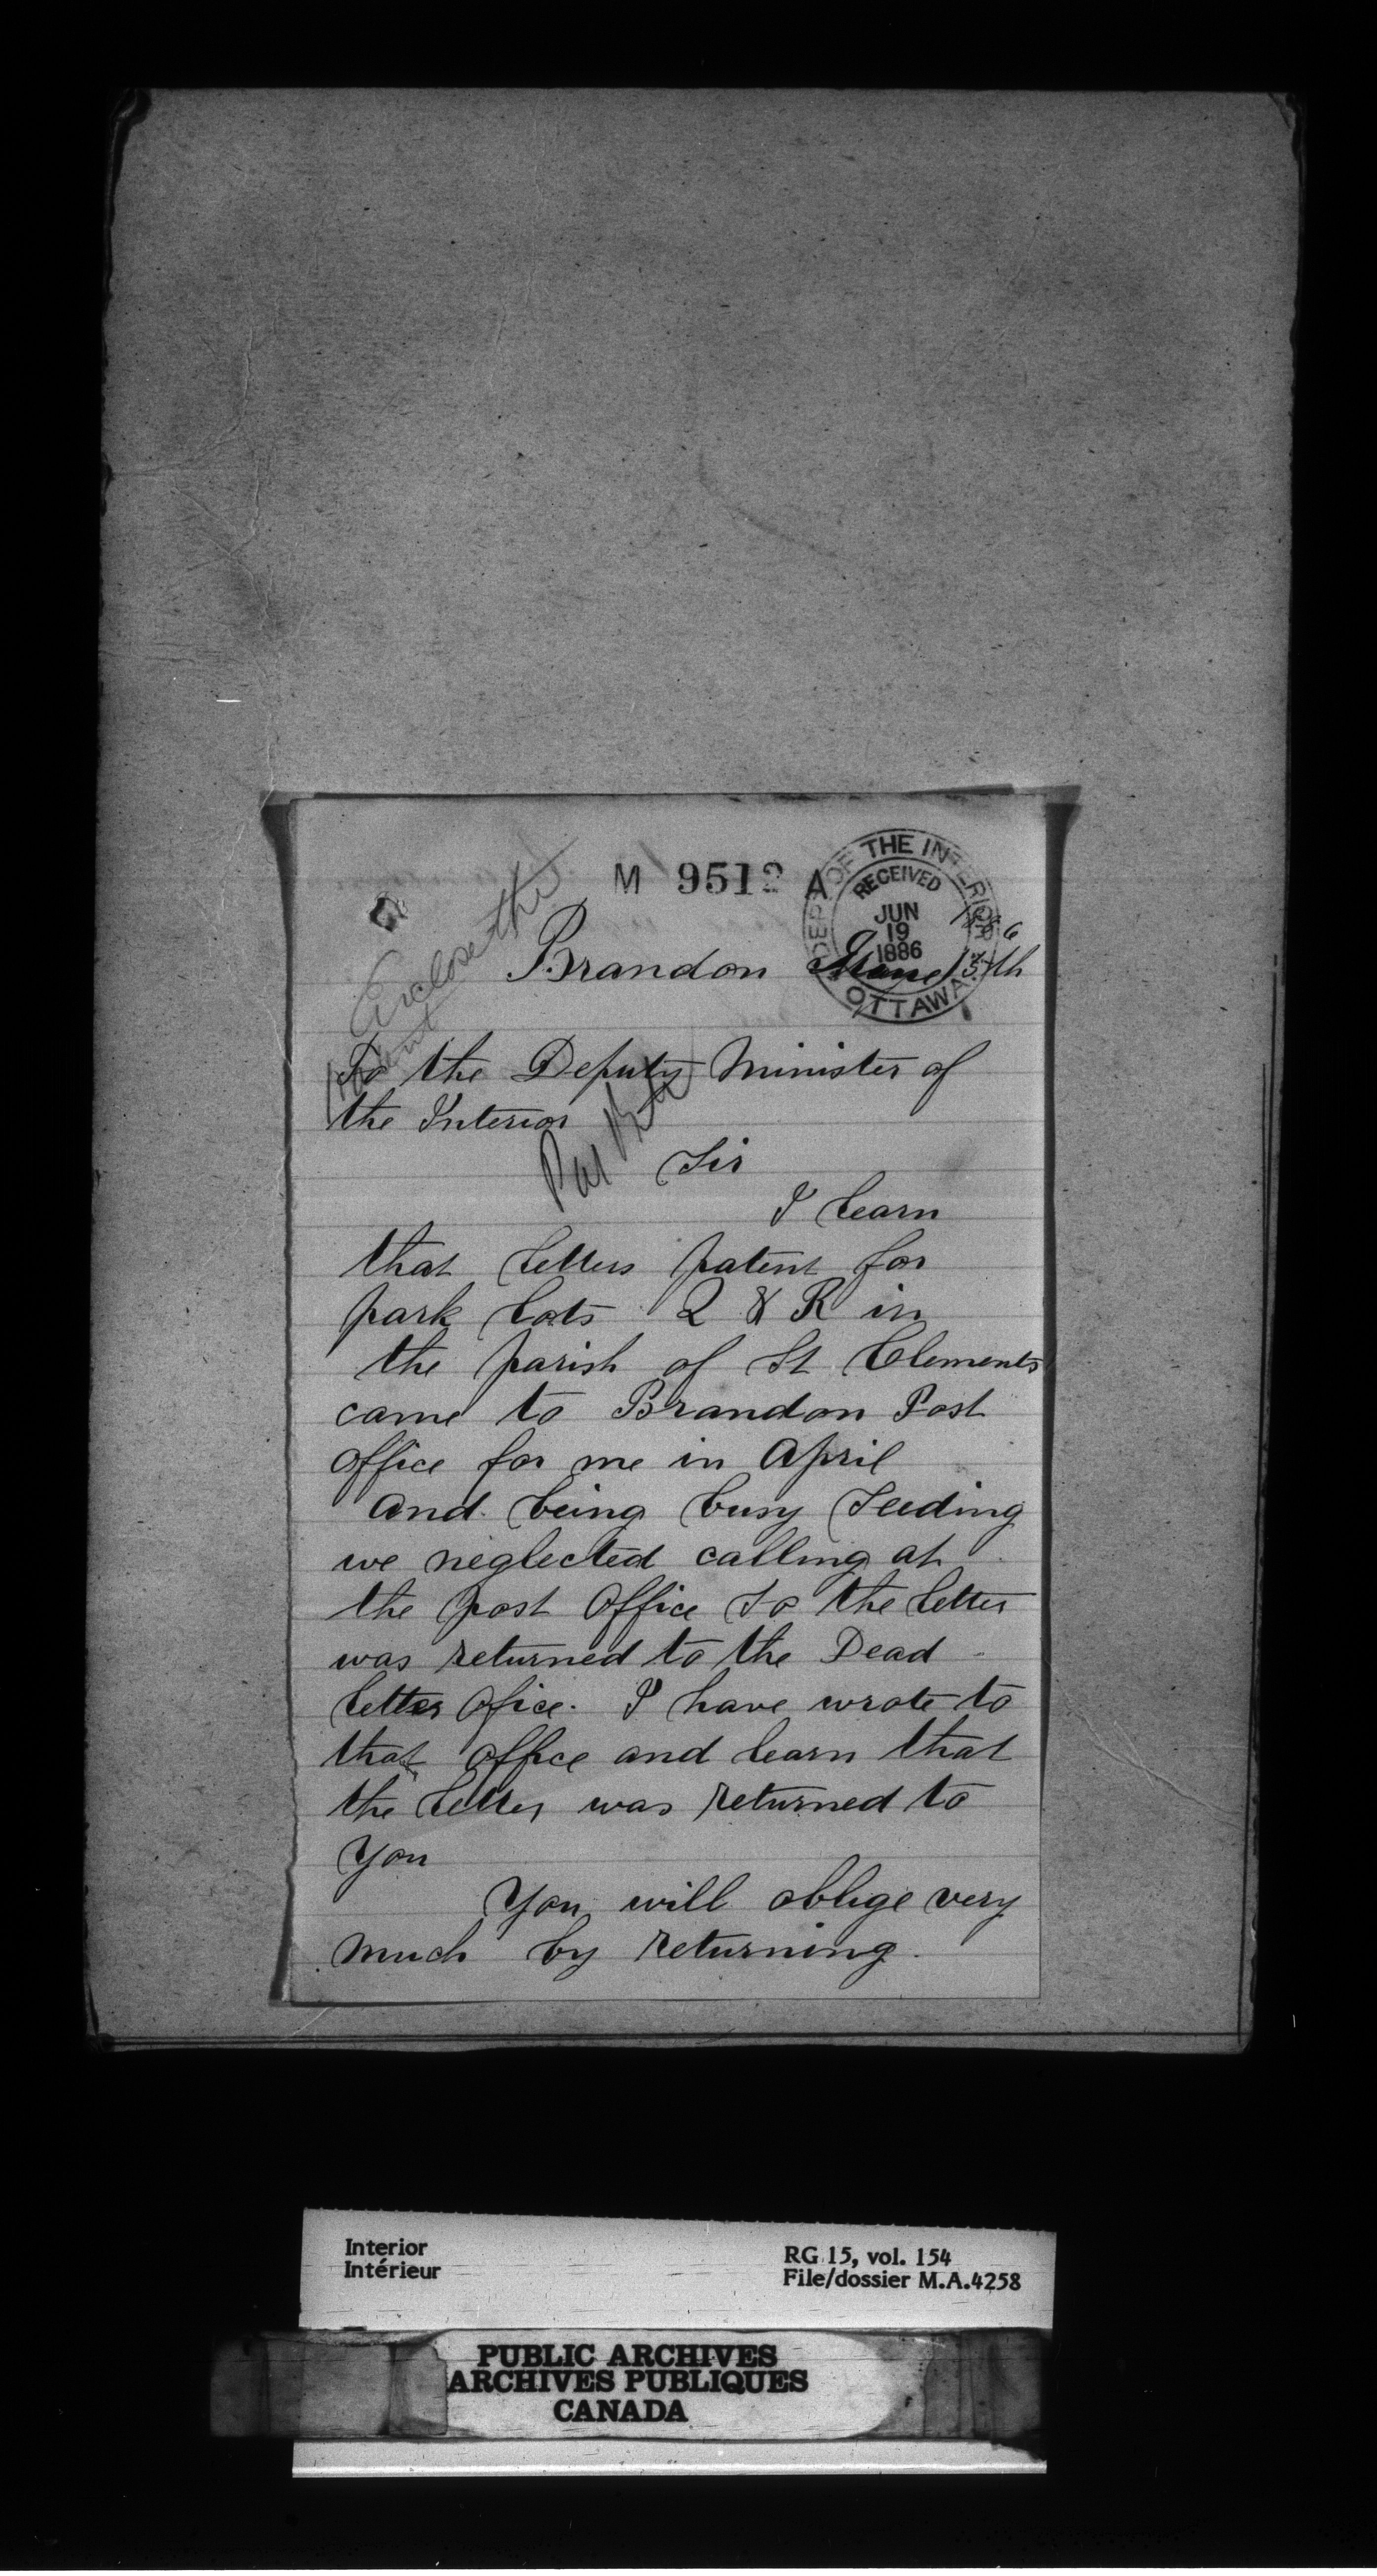 M 9512 A
DEPT OF THE INTERIOR
RECEIVED
JUN
19
1886
OTTAWA
Enclose the
1886
Brandon June 15th
To the Deputy Minister of
the Interior
Sir
I learn
that letters patent for
park lots Q & R in
the parish of St Clements
came to Brandon Post
office for me in April
and being busy Seeding
we neglected calling at
the post Office So the letter
was returned to the Dead
letter Ofice. I have wrote to
that office and learn that
the letter was returned to
You
You will oblige very
much by returning.
Interior
Intérieur
RG 15, vol. 154
File/dossier M.A.4258
PUBLIC ARCHIVES
ARCHIVES PUBLIQUES
CANADA